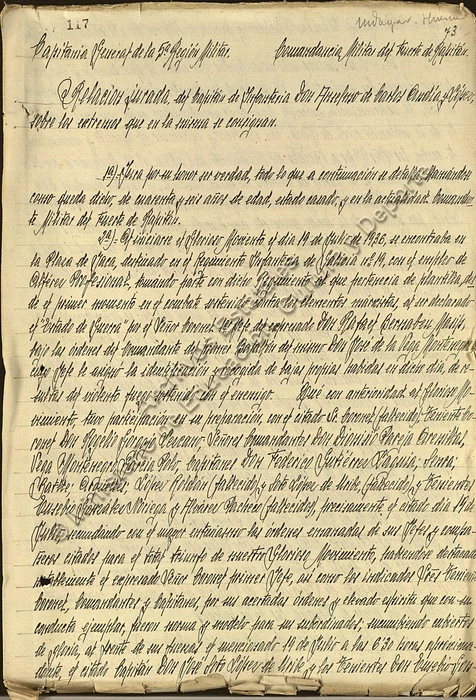 117
73
Capitania General de la 5ª Región Militar. Comandancia Militar del Fuerte de Rapitán.
Relacion jurada, del Capitán de Infanteria Don Anselmo de Carlos
sobre los extremos que en la misma se consignan.
1º).-Jura por su honor ser verdad, todo lo que a continuación se detalla, llamándose
como queda dicho, de cuarenta y seis años de edad, estado casado, y en la actualidad Comandan-
te Militar del Fuerte de Rapitán.
2º).-Al iniciarse el Glorioso Movimiento el dia 19 de Julio de 1936, se encontraba en
la Plaza de Jaca, destinado en el Regimiento Infanteria de Galicia nº 19, con el empleo de
Alférez Profesional, tomando parte con dicho Regimiento al que pertenecia de plantilla, des-
de el primer momento en el combate sostenido contra los elementos marxistas, al ser declarado
el Estado de Guerra por el Señor Coronel 1er Jefe del expresado Don Rafael Bernabeu Masip,
bajo las órdenes del Comandante del primer Batallón del mismo Don José de la Vega Montenegro,
cuyo Jefe le asignó la identificación y recogida de bajas propias habidas en dicho dia, de re-
sultas del violento fuego sostenido con el enemigo. con anterioridad al Glorioso Mo-
vimiento, tuvo participación en su preparación, con el citado Sr. Coronel (fallecido), Teniente Co-
ronel Don Señores Comandantes Don Dionisio Pareja Arenillas,
Vega Montenegro, Capitanes Don Federico Gutiérrez
López (fallecido), y Soto López de Uribe, (fallecido), y Tenientes
Eusebio González y Alvarez Pacheco (fallecidos), precisamente el citado dia 19 de
Julio, secundando con el mayor entusiasmo las órdenes emanadas de sus Jefes y compa-
ñeros citados para el total triunfo de nuestro Glorioso Movimiento, habiéndose destacado
notablemente el expresado Señor Coronel primer Jefe, asi como los indicados Tres Teniente
Coronel, Comandantes y Capitanes, por sus acertadas órdenes y elevado espiritu que con su
conducta ejemplar, fueron norma y modelo para sus subordinados, sucumbiendo cubiertos
de gloria, al frente de sus fuerzas el mencionado 19 de Julio a las 6'30 horas, aproximada-
mente, el citado Capitán Don José Soto López de Uribe, y los Tenientes Don Eusebio